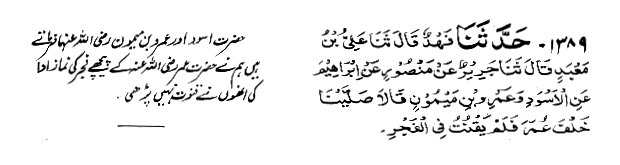 ١٣٨٩ - حَدَّثَنَا فَهْدٌ قَالَ ثَنَا عَلِيُّ بْنُ
مَعْبَدٍ قَالَ ثَنَا جَرِيرٌ عَنْ مَنْصُورٍ عَنْ اِبْرَاهِيْمَ
عَنِ الْاَسْوَدِ وَعَمْرِو بْنِ مَيْمُوْنٍ قَالَا صَلَّيْنَا
خَلْفَ عُمَرَ فَلَمْ يَقْنُتْ فِى الْفَجْرِ ۔
حضرت اسود اور عمرو بن میمون رضی اللہ عنہما فرماتے
ہیں ہم نے حضرت عمر رضی اللہ عنہ کے پیچھے فجر کی نماز ادا
کی انھوں نے قنوت نہیں پڑھی ۔